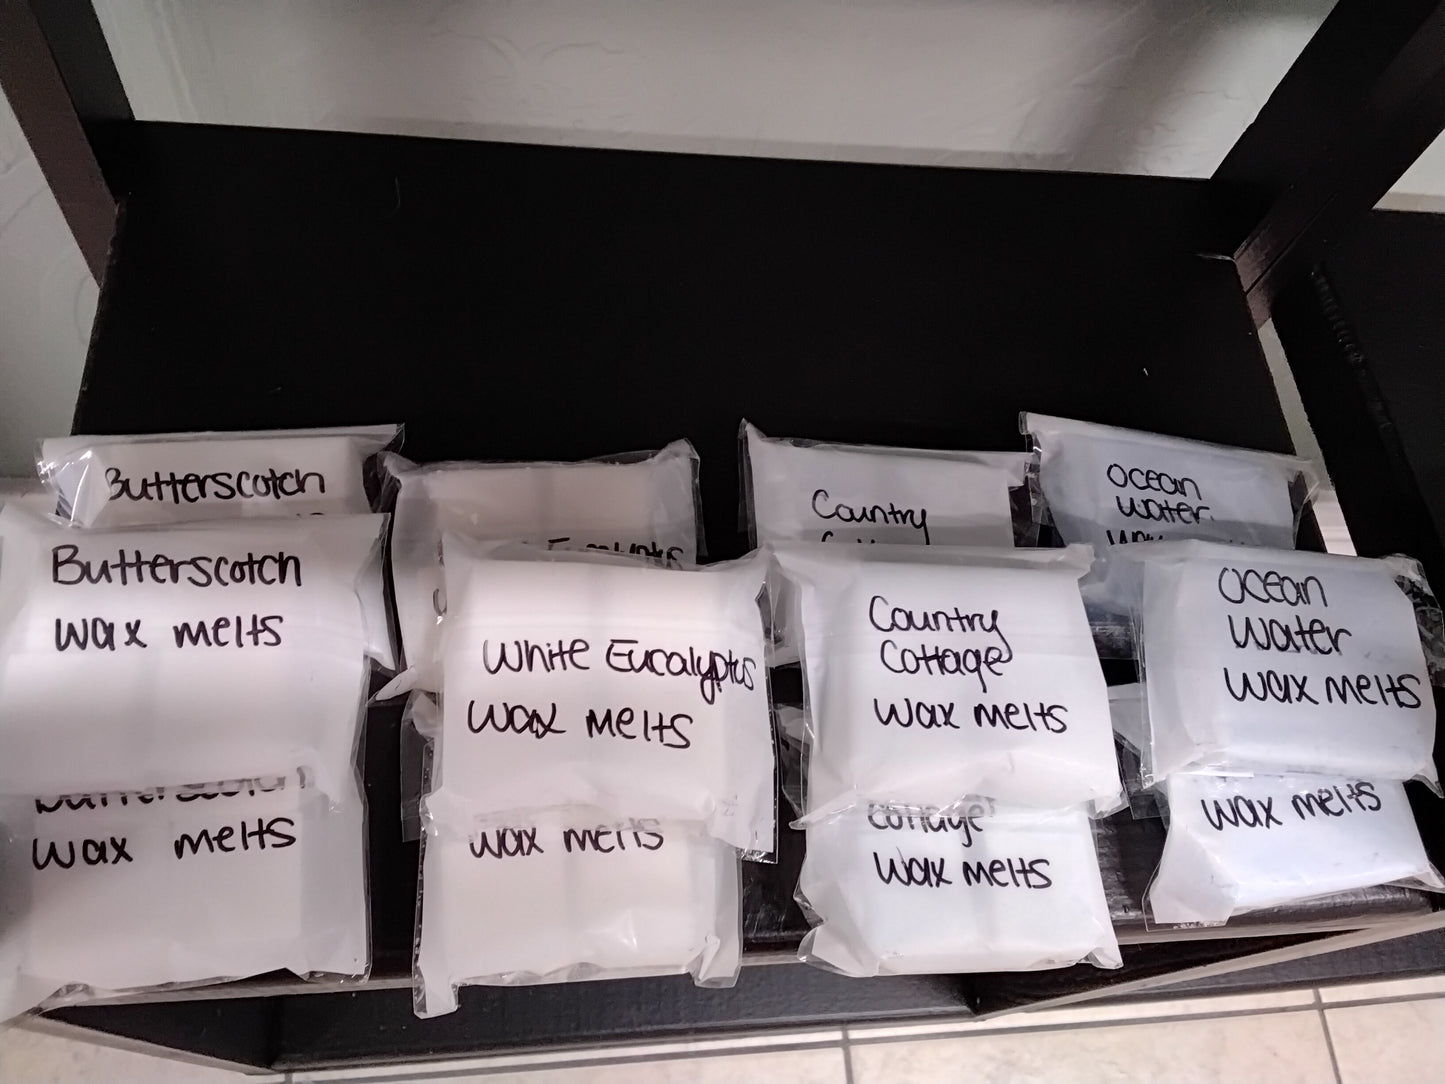 Butterscotch
Butterscotch
wax melts
Butterscotch
wax melts
Eucalyptus
White Eucalyptus
wax melts
wax melts
Country
Country
Cottage
wax melts
Cottage
wax melts
Ocean
water
wax
Ocean
water
wax melts
wax melts